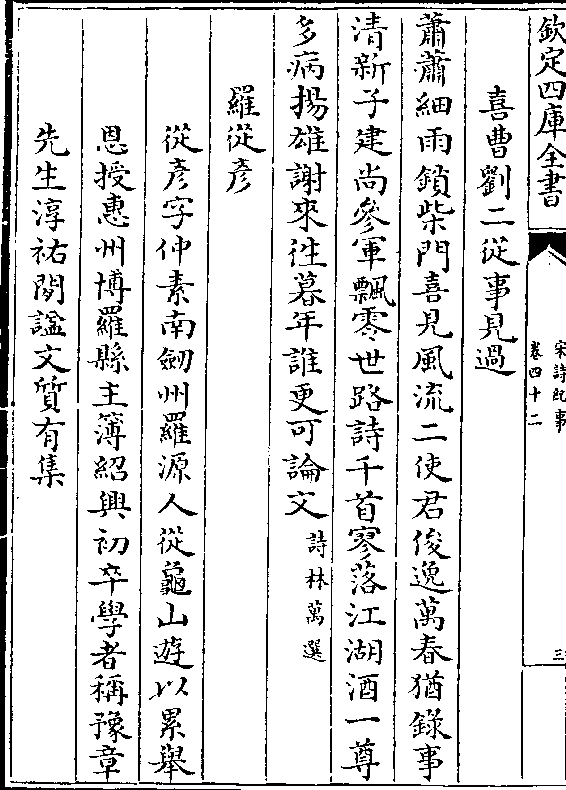 欽定四庫全書
宋詩紀事
卷四十二
三
喜曹劉二從事見過
蕭蕭細雨鎖柴門喜見風流二使君俊逸萬春猶錄事
清新子建尚參軍飄零世路詩千首寥落江湖酒一尊
多病揚雄謝來往暮年誰更可論文詩林萬選
羅從彥
從彥字仲素南劒州羅源人從龜山遊以累舉
恩授惠州博羅縣主簿紹興初卒學者稱豫章
先生淳祐閒謚文質有集